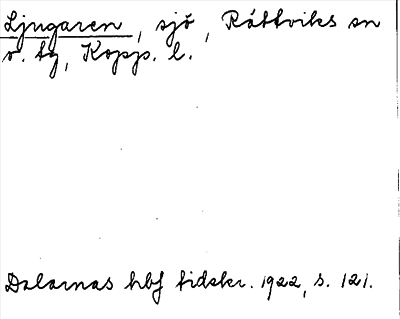 Ljugaren, sjö, Rättviks sn
o. tg, Kopp. l.
Dalarnas hbf tidskr. 1922, s. 121.